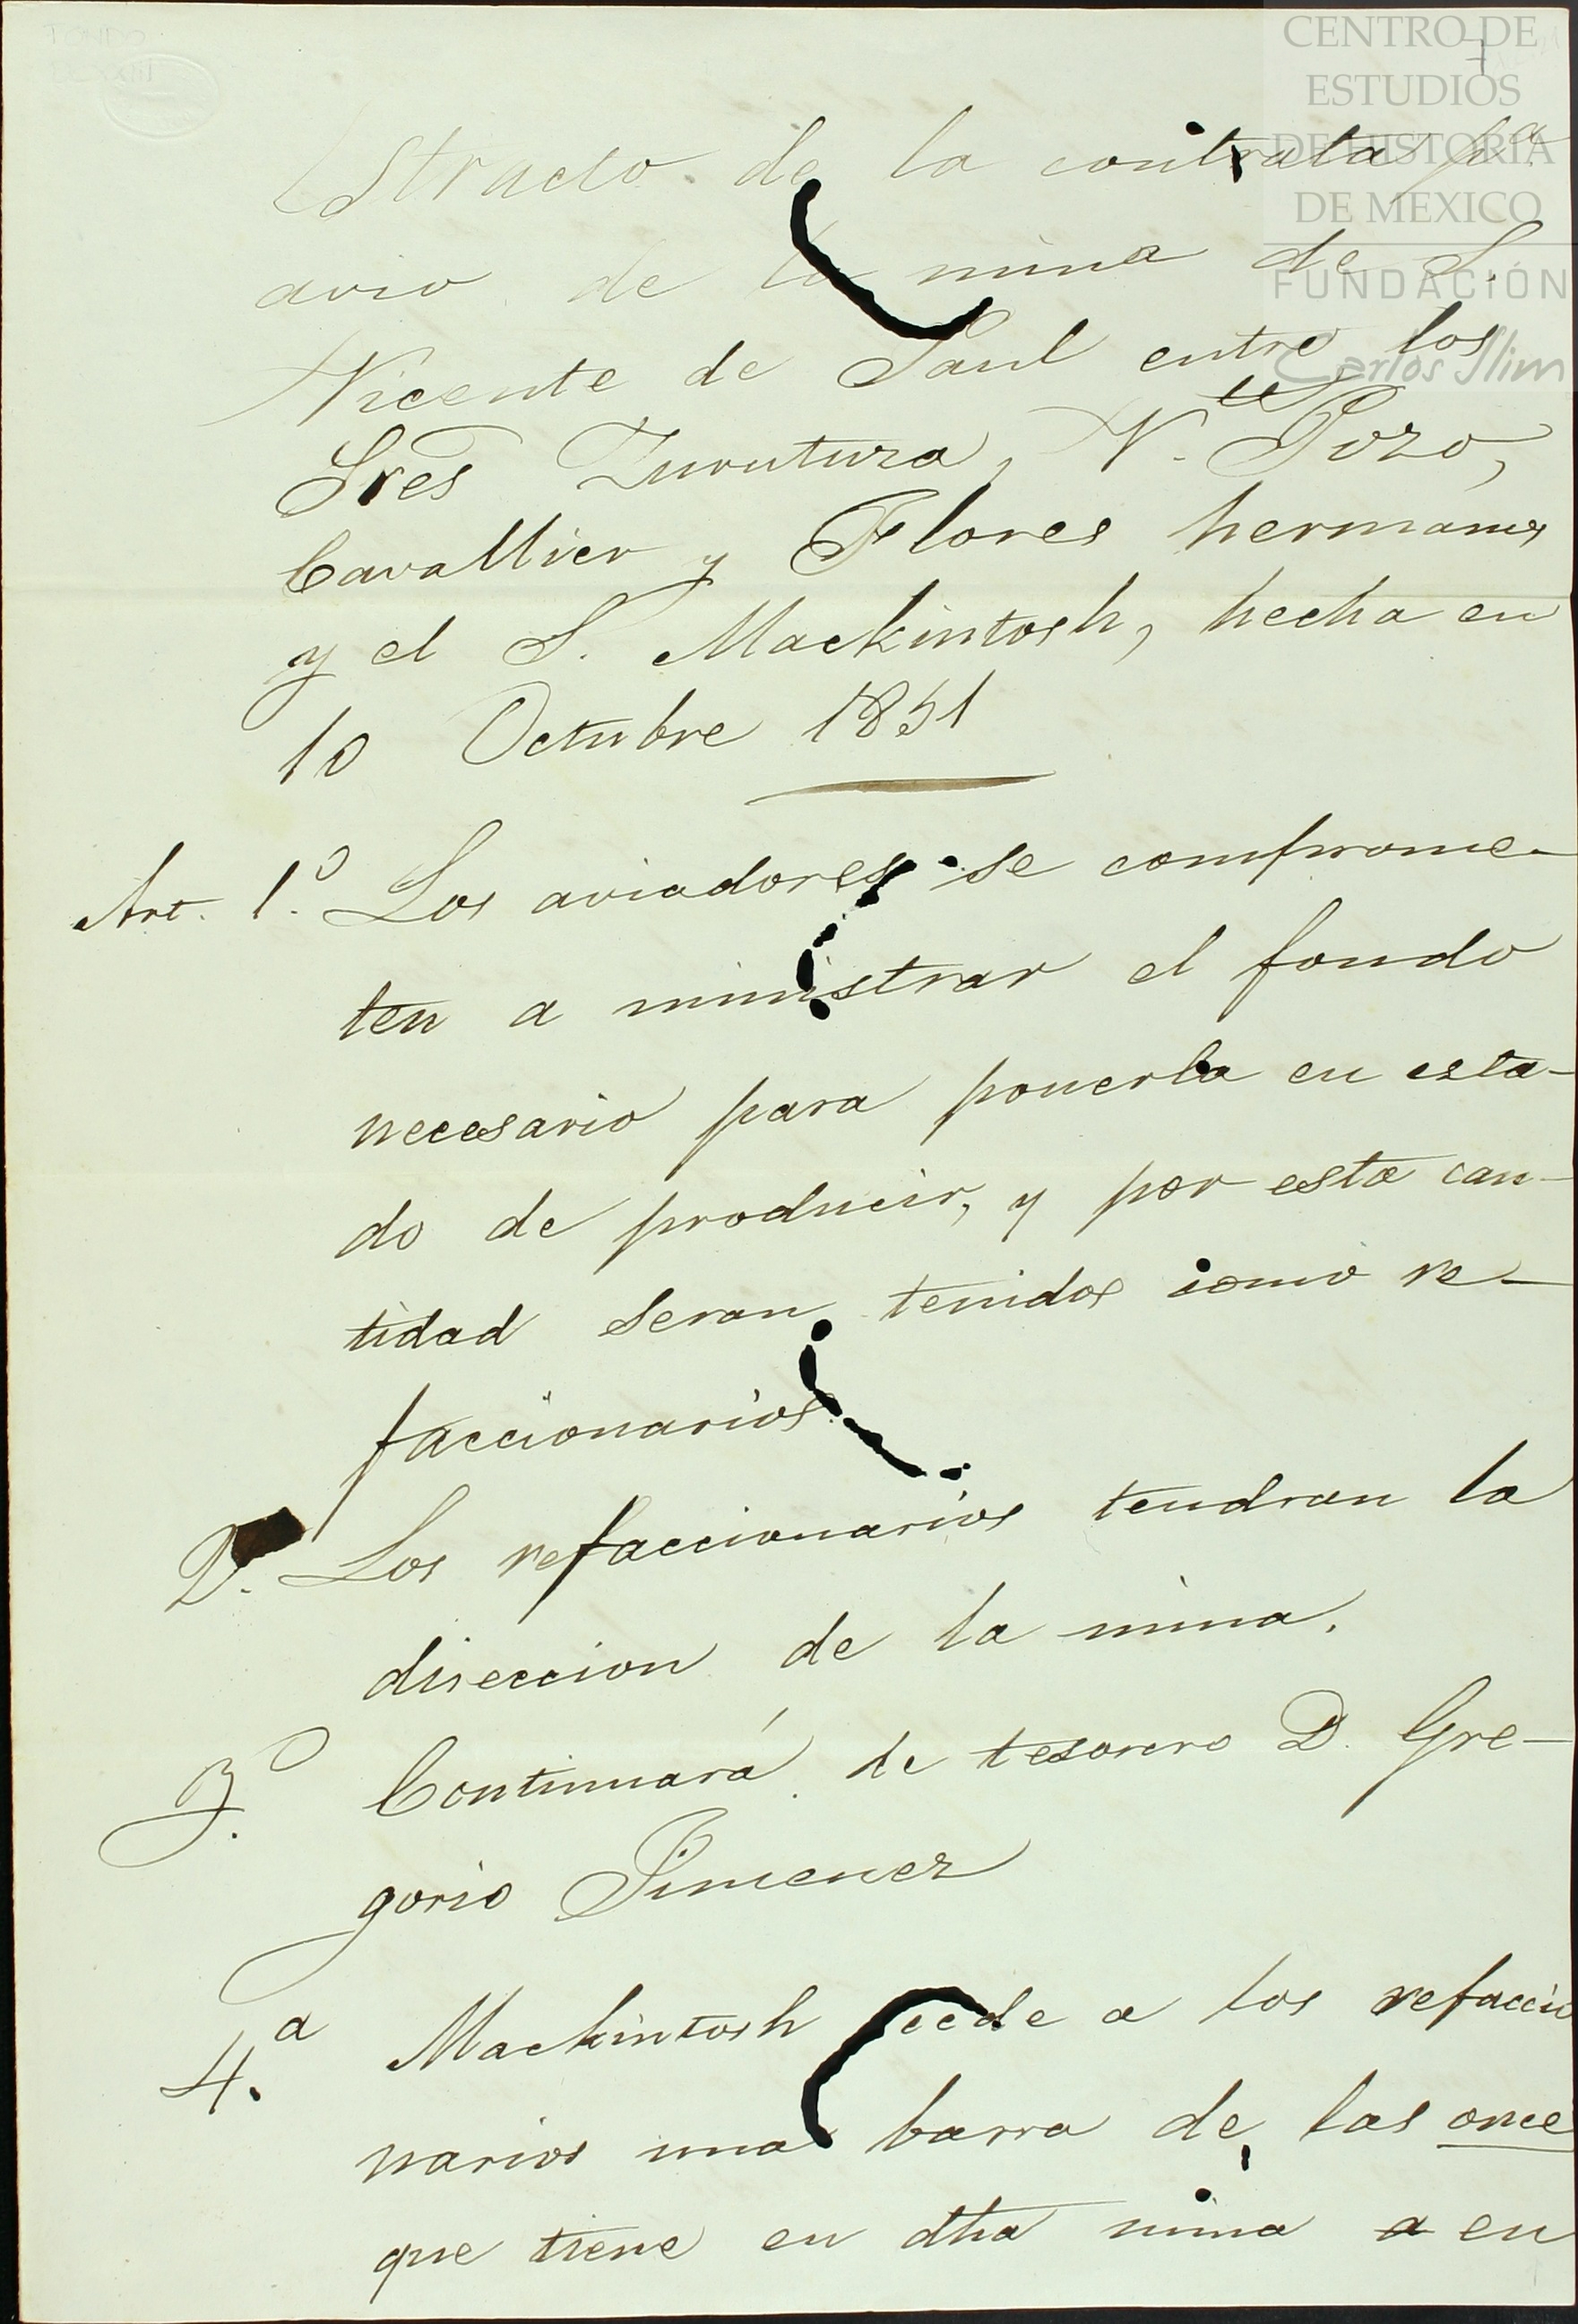 7
CENTRO DE
ESTUDIOS
DE HISTORIA
DE MEXICO
FUNDACIÓN
Carlos Slim
Estracto de la contrata pa
avio de la mina de S.
Vicente de Paul entre los
Sres Zurutuza, V. Pozo,
Cavallier y Flores hermanos
y el S. Mackintosh, hecha en
10 Octubre 1851
Art. 1.º Los aviadores se comprome-
ten a ministrar el fondo
necesario para ponerla en esta-
do de producir, y por esta can-
tidad seran tenidos como re-
faccionarios
2. Los refaccionarios tendran la
direccion de la mina.
3.º Continuará de tesorero D. Gre-
gorio Jimenez
4.a Mackintosh cede a los refaccio
narios una barra de las once
que tiene en dha mina a en